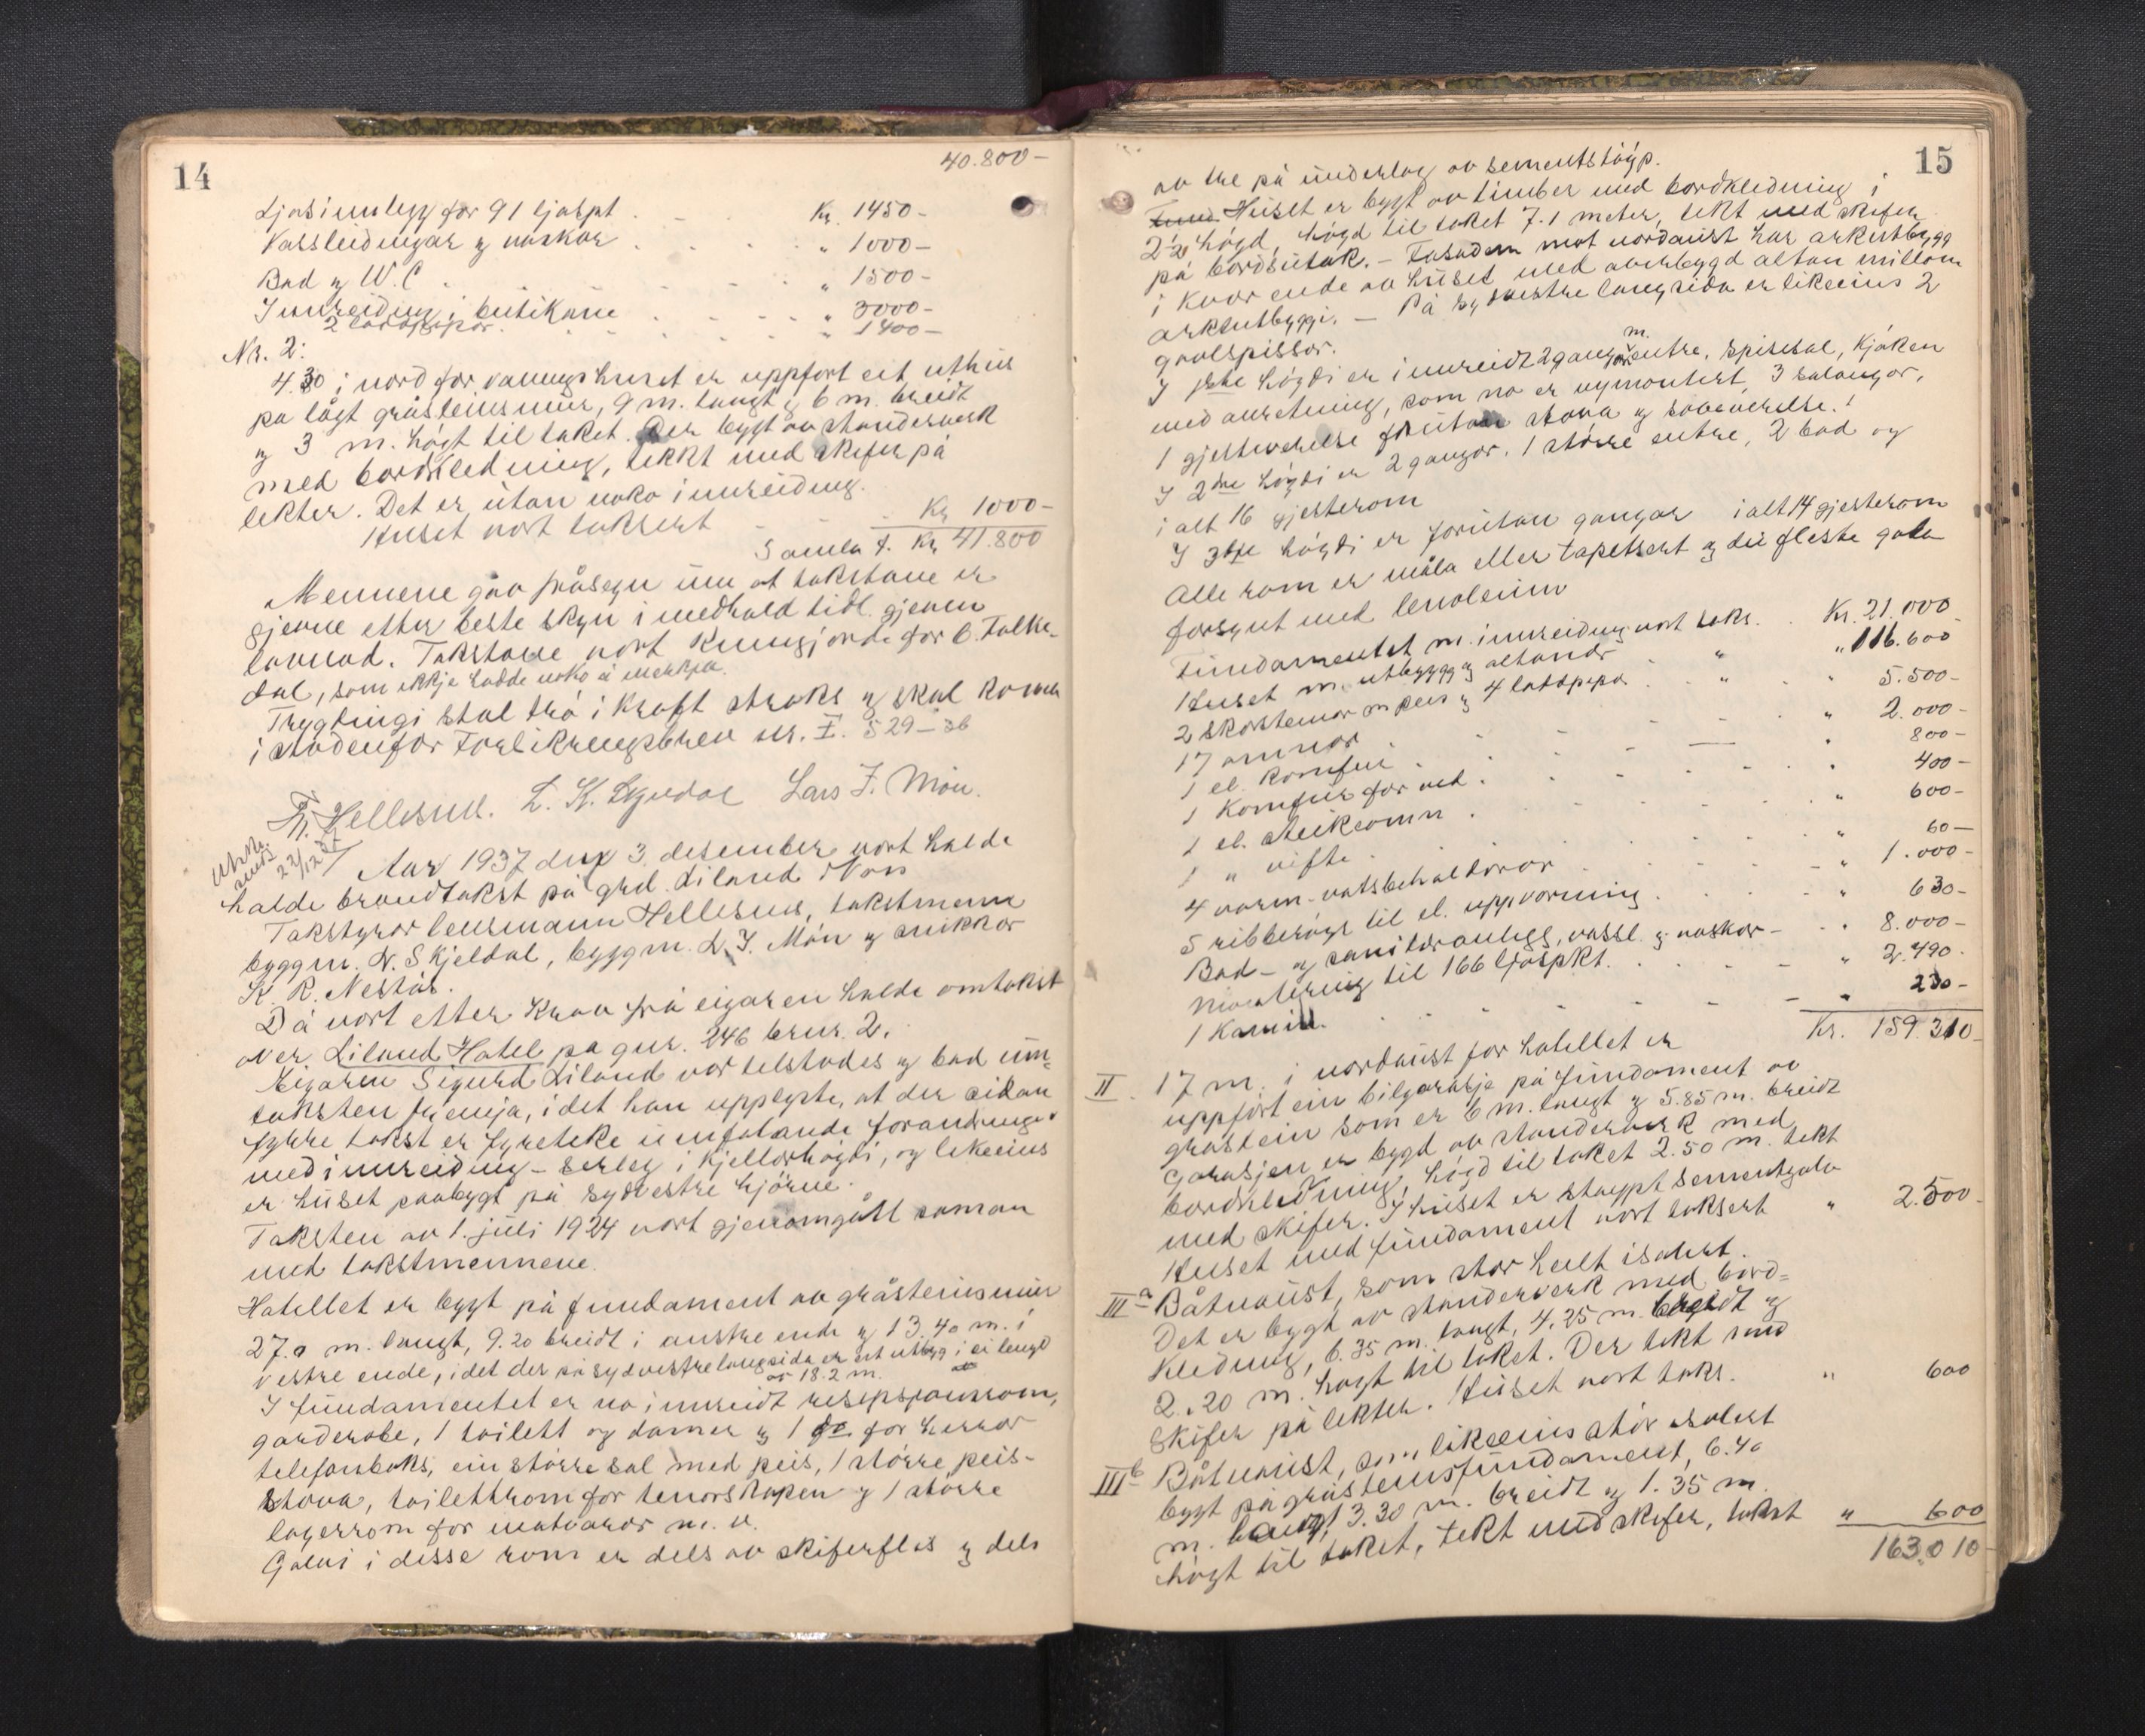 14
40.800-
Ljosinnlegg for 91 ljospt. Kr. 1450-
Vassleidingar og vaskar " 1000-
Bad og W.C. " 1500-
Innreiding i butikane " 3000-
2 loddpipor " 1400-
Nr. 2:
4.30 i nord for vaaningshuset er uppført eit uthus
på lågt gråsteinsmur, 9 m. langt og 6 m. breidt
og 3 m. høgt til taket. Der bygt av standerverk
med bordkledning, tekkt med skifer på
lekter. Det er utan noko innreiding.
Huset vort taksert Kr 1000-
Samla t. Kr 41.800
Mennene gav fråsegn um at takstane er
gjevne etter beste skyn i medhald tidl. gjeven
lovnad. Takstane vort kunngjorde for O. Folke-
dal, som ikkje hadde noko å merkja.
Trygdingi skal trå i kraft straks og skal koma
i stadenfor Forsikringsbrev nr. I. 529-36
Th. Hellesnes. L. K. Skjeldal Lars J. Møn.
Utskr.
sendt
22/12 37
Aar 1937 den 3. desember vort halde
halde brandtakst på grd. Liland i Voss
Takstyrar lensmann Hellesnes, takstmenn
byggm. N. Skjeldal, byggm. L. J. Møn og snikkar
K. R. Nestås.
Då vort etter krav frå eigaren halde omtakst
over Liland Hotel på gnr. 246 brnr. 2.
Eigaren Sigurd Liland var tilstades og bad um-
taksten fremja, idet han upplyste, at der sidan
fyrre takst er fyreteke umfatande forandringar
med innreiding - serleg i kjellarhøgdi, og likeeins
er huset paabygt på sydvestre hjørne.
Taksten av 1. juli 1924 vort gjenomgått saman
med takstmennene.
Hotellet er bygt på fundament av gråsteinsmur
27.0 m. langt, 9.20 breidt i austre ende og 13.40 m. i
vestre ende, idet der på sydvestre langsida er eit utbyg i ei lengd
av 18.2 m.
I fundamentet er no innreidt resepsjonsrom,
garderobe, 1 toilett og damer og 1 do for herrar
telefonboks, ein større sal med peis, 1 større peis-
stova, toilettrom for tenarskapen og 1 større
lagerrom for matvaror m. v.
Golvi i disse rom er dels av skiferflis og dels
15
av tre på underlag av sementstøyp.
Huset er bygt av timber med bordkledning i
2½ høgd, høgd til taket 7.1 meter, tekt med skifer
på bordsutak. - Fasaden mot nordaust har arkutbygg
i kvar ende av huset med overbygd altan millom
arkeutbyggi. - På sydvestre langsida er likeeins 2
gavlspissar.
I 1ste høgdi er innreidt 2 gangar m. entre, spisesal, kjøken
med anretning, som no er nymontert, 3 salongar,
1 gjesteverelse forutan stova og soveverelse.
I 2dre høgdi er 2 gangar. 1 større entre, 2 bad og
i alt 16 gjesterom
I 3dje høgdi er forutan gangar ialt 14 gjesterom
Alle rom er måla eller tapetsert og dei fleste golv
forsynt med lenoleum
Fundamentet m. innreiding vort taks. Kr. 21.000
Huset m. utbygg og altaner " " 116.600
2 skorsteinar m peis og 4 loddpipor " " 5.500-
17 omnar " 2.000-
1 el. komfur " 800-
1 komfur for ved " 400-
1 el. steikeomn " 600-
1 " vifte " 60-
4 varm-vatsbehaldarar " 1.000-
5 ribberøyr til el. uppvarming " 630-
Bad- og sanitæranlegg, vassl. og vaskar - " 8.000-
Montering til 166 ljospkt. " 2.490-
1 kamin " 230-
Kr. 159.310-
II. 17 m. i nordaust for hotellet er
uppført ein bilgarasje på fundament av
gråstein som er 6 m. langt og 5.85 m. breidt
Garasjen er bygd av standerverk med
bordkledning, høgd til taket 2.50 m. tekt
med skifer. I huset er støypt sementgolv
Huset med fundament vort taksert " 2.500-
IIIa Båtnaust, som står heilt isolert.
Det er bygt av standerverk med bord-
kledning, 6.35 m. langt, 4.25 m. breidt og
2.20 m. høgt til taket. Der tekt med
skifer på lekter. Huset vort taks. " 600
IIIb Båtnaust, som likeeins står isolert
bygt på gråsteinsfundament, 6.40
m. langt, 3.30 m. breidt og 1.35 m.
høgt til taket, tekt med skifer, takst " 600
163.010-